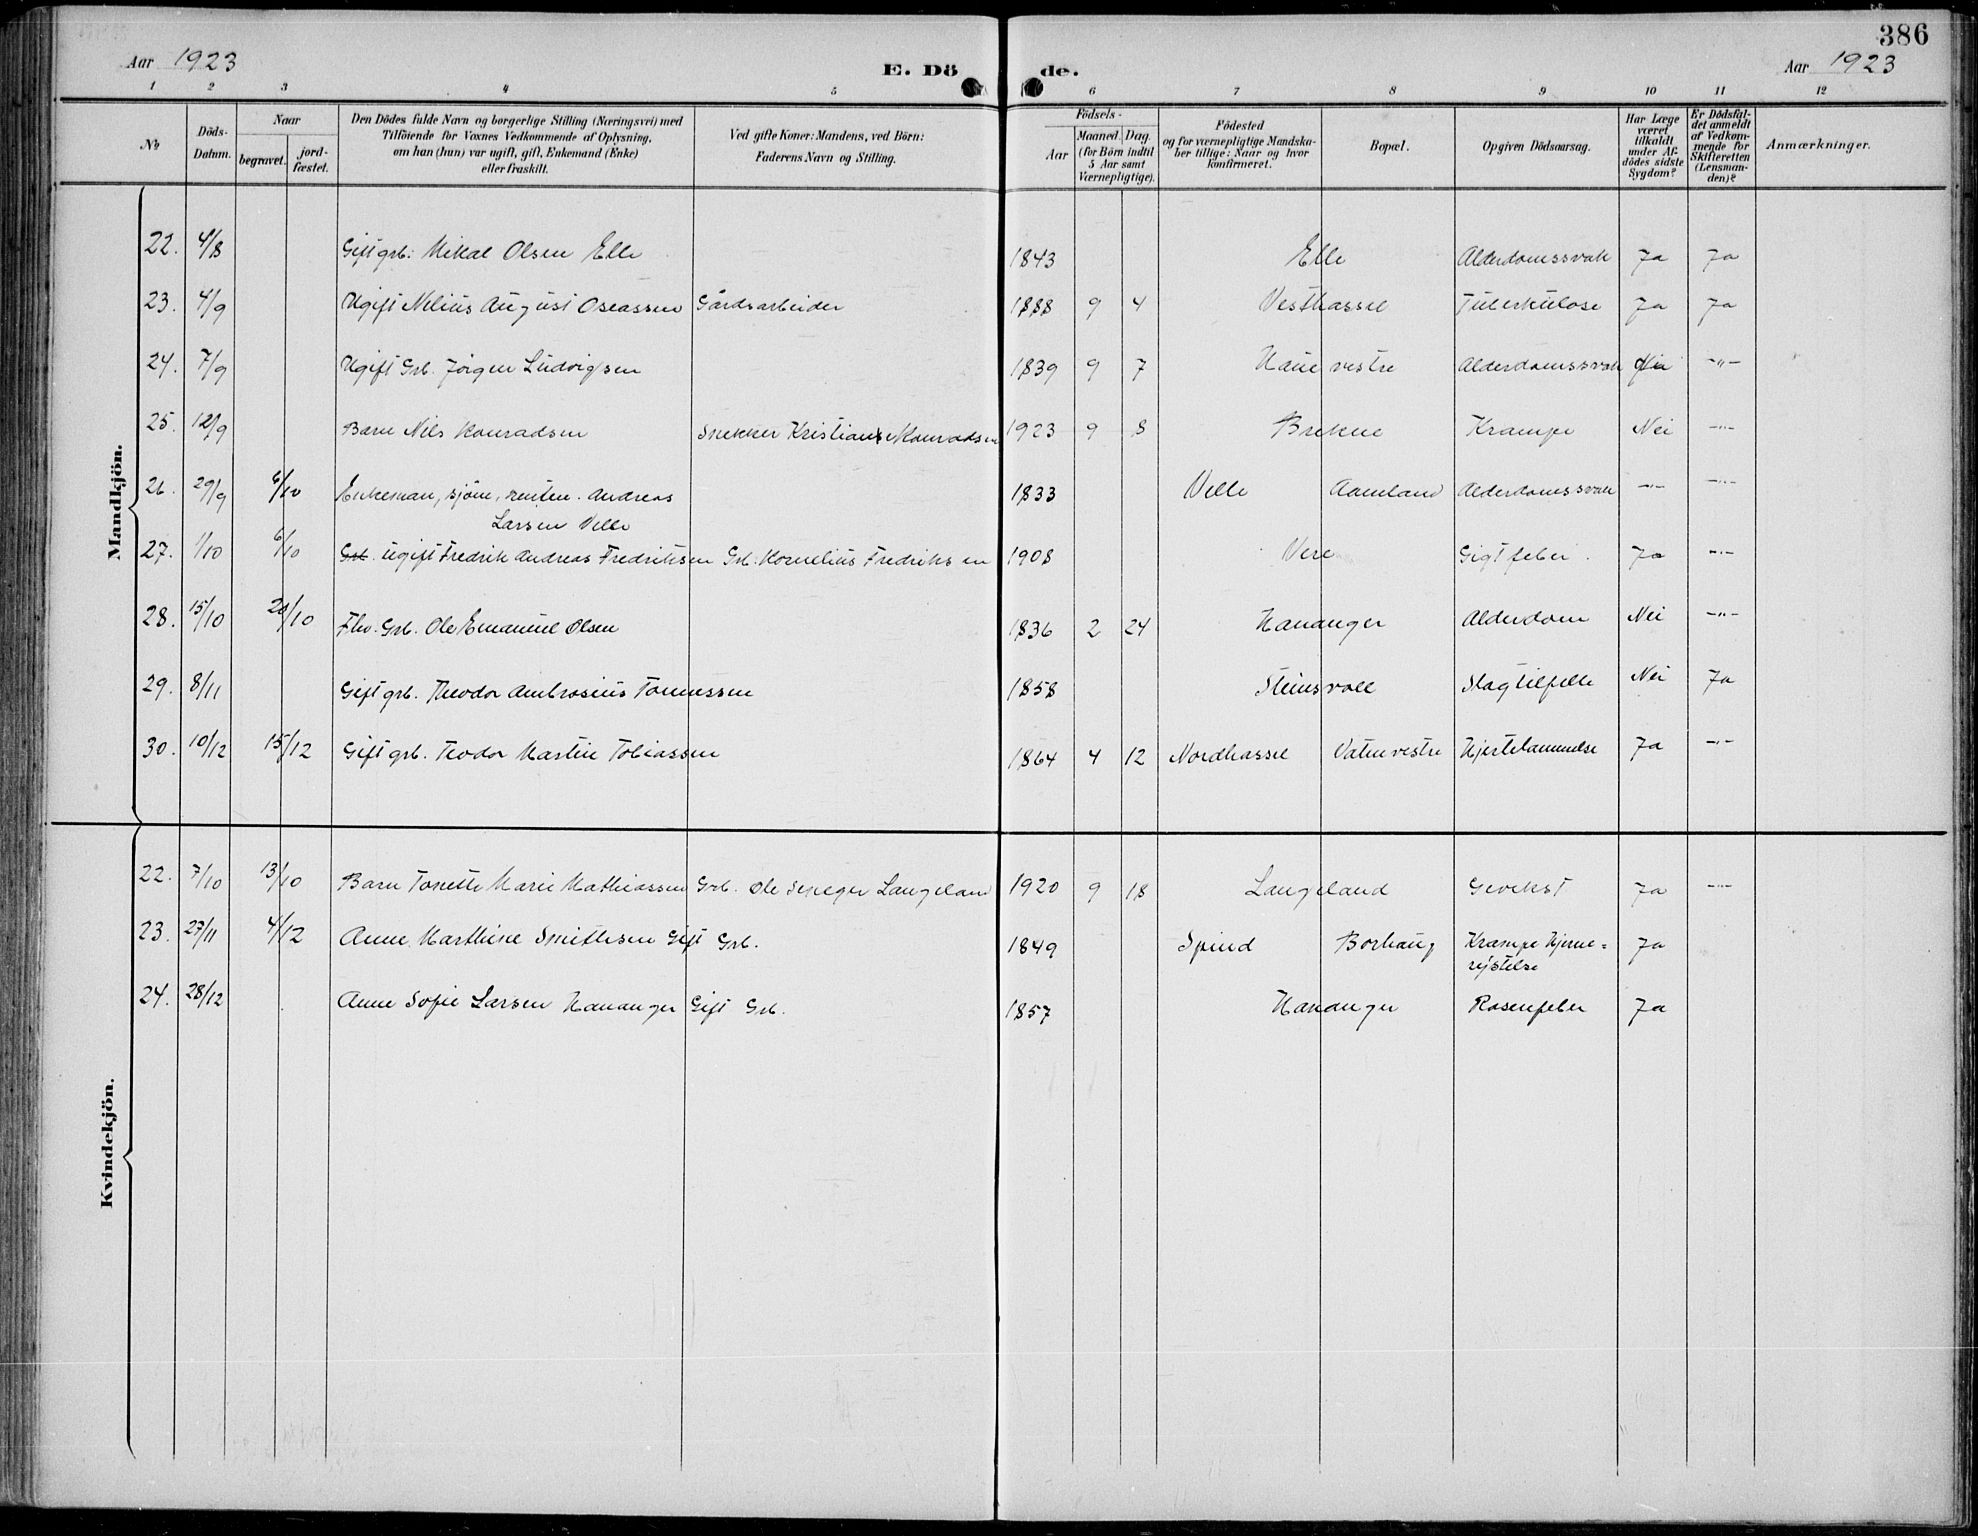 386
Aar 1923 E. Dö de. Aar 1923
1 2 3 4 5 6 7 8 9 10 11 12
No
Döds-Datum.
Naar
begravet.
jord-fæstet.
Den Dödes fulde Navn og borgerlige Stilling (Næringsvei) med
Tilföiende for Voxnes Vedkommende af Oplysning,
om han (hun) var ugift, gift, Enkemand (Enke)
eller fraskilt.
Ved gifte Koner: Mandens, ved Börn:
Faderens Navn og Stilling.
Födsels-
Aar
Maaned Dag.
(for Börn indtil
5 Aar samt
Værnepligtige).
Födested
og for værnepligtige Mandska-
ber tillige: Naar og hvor
konfirmeret.
Bopæl.
Opgiven Dödsaarsag.
Har Læge
været
tilkaldt
under Af-
dödes sidste
Sygdom?
Er Dödsfal-
det anmeldt
af Vedkom-
mende for
Skifteretten
(Lensman-
den)?
Anmærkninger.
Mandkjön.
22. 4/8 Gift grb: Mikal Olsen Elle 1843 Elle Alderdomssvak Ja Ja
23. 4/9 Ugift Nilius August Oseassen Gårdsarbeider 1888 9 4 Vesthassel Tuberkulose Ja Ja
24. 7/9 Ugift Grb. Jörgen Ludvigsen 1839 9 7 Haue vestre Alderdomssvak Nei -"-
25. 12/9 Barn Nils Konradsen Snekker Kristian Konradsen 1923 9 8 Brekne Krampe Nei -"-
26. 29/9 6/10 Enkeman, sjöm, renten. Andreas 1833 Velle Aamland Alderdomssvak -"- -"-
Larsen Velle
27. 1/10 6/10 Grb. ugift Fredrik Andreas Fredriksen Grb. Kornelius Fredriksen 1908 Vere Gigtfeber. Ja -"-
28. 15/10 20/10 Fhv. Grb. Ole Emanuel Olsen 1836 2 24 Hananger Alderdom Nei -"-
29. 8/11 Gift grb. Theodor Ambrosius Tönnessen 1858 Steinsvoll Slagtilfelle Nei Ja
30. 10/12 15/12 Gift grb. Teodor Martin Tobiassen 1864 4 12 Nordhassel Vatne vestre Hjertelammelse Ja -"-
Kvindekjön.
22. 7/10 13/10 Barn Tonette Marie Mathiassen Grb. Ole Langeland 1920 9 18 Langeland Gevekst Ja -"-
23. 27/11 4/12 Anne Marthine Smithsen Gift Grb. 1849 Spind Borhaug Krampe Hjerne=
rystelse Ja
24. 28/12 Anne Sofie Larsen Hananger Gift Grb. 1857 Hananger Rosenfeber Ja